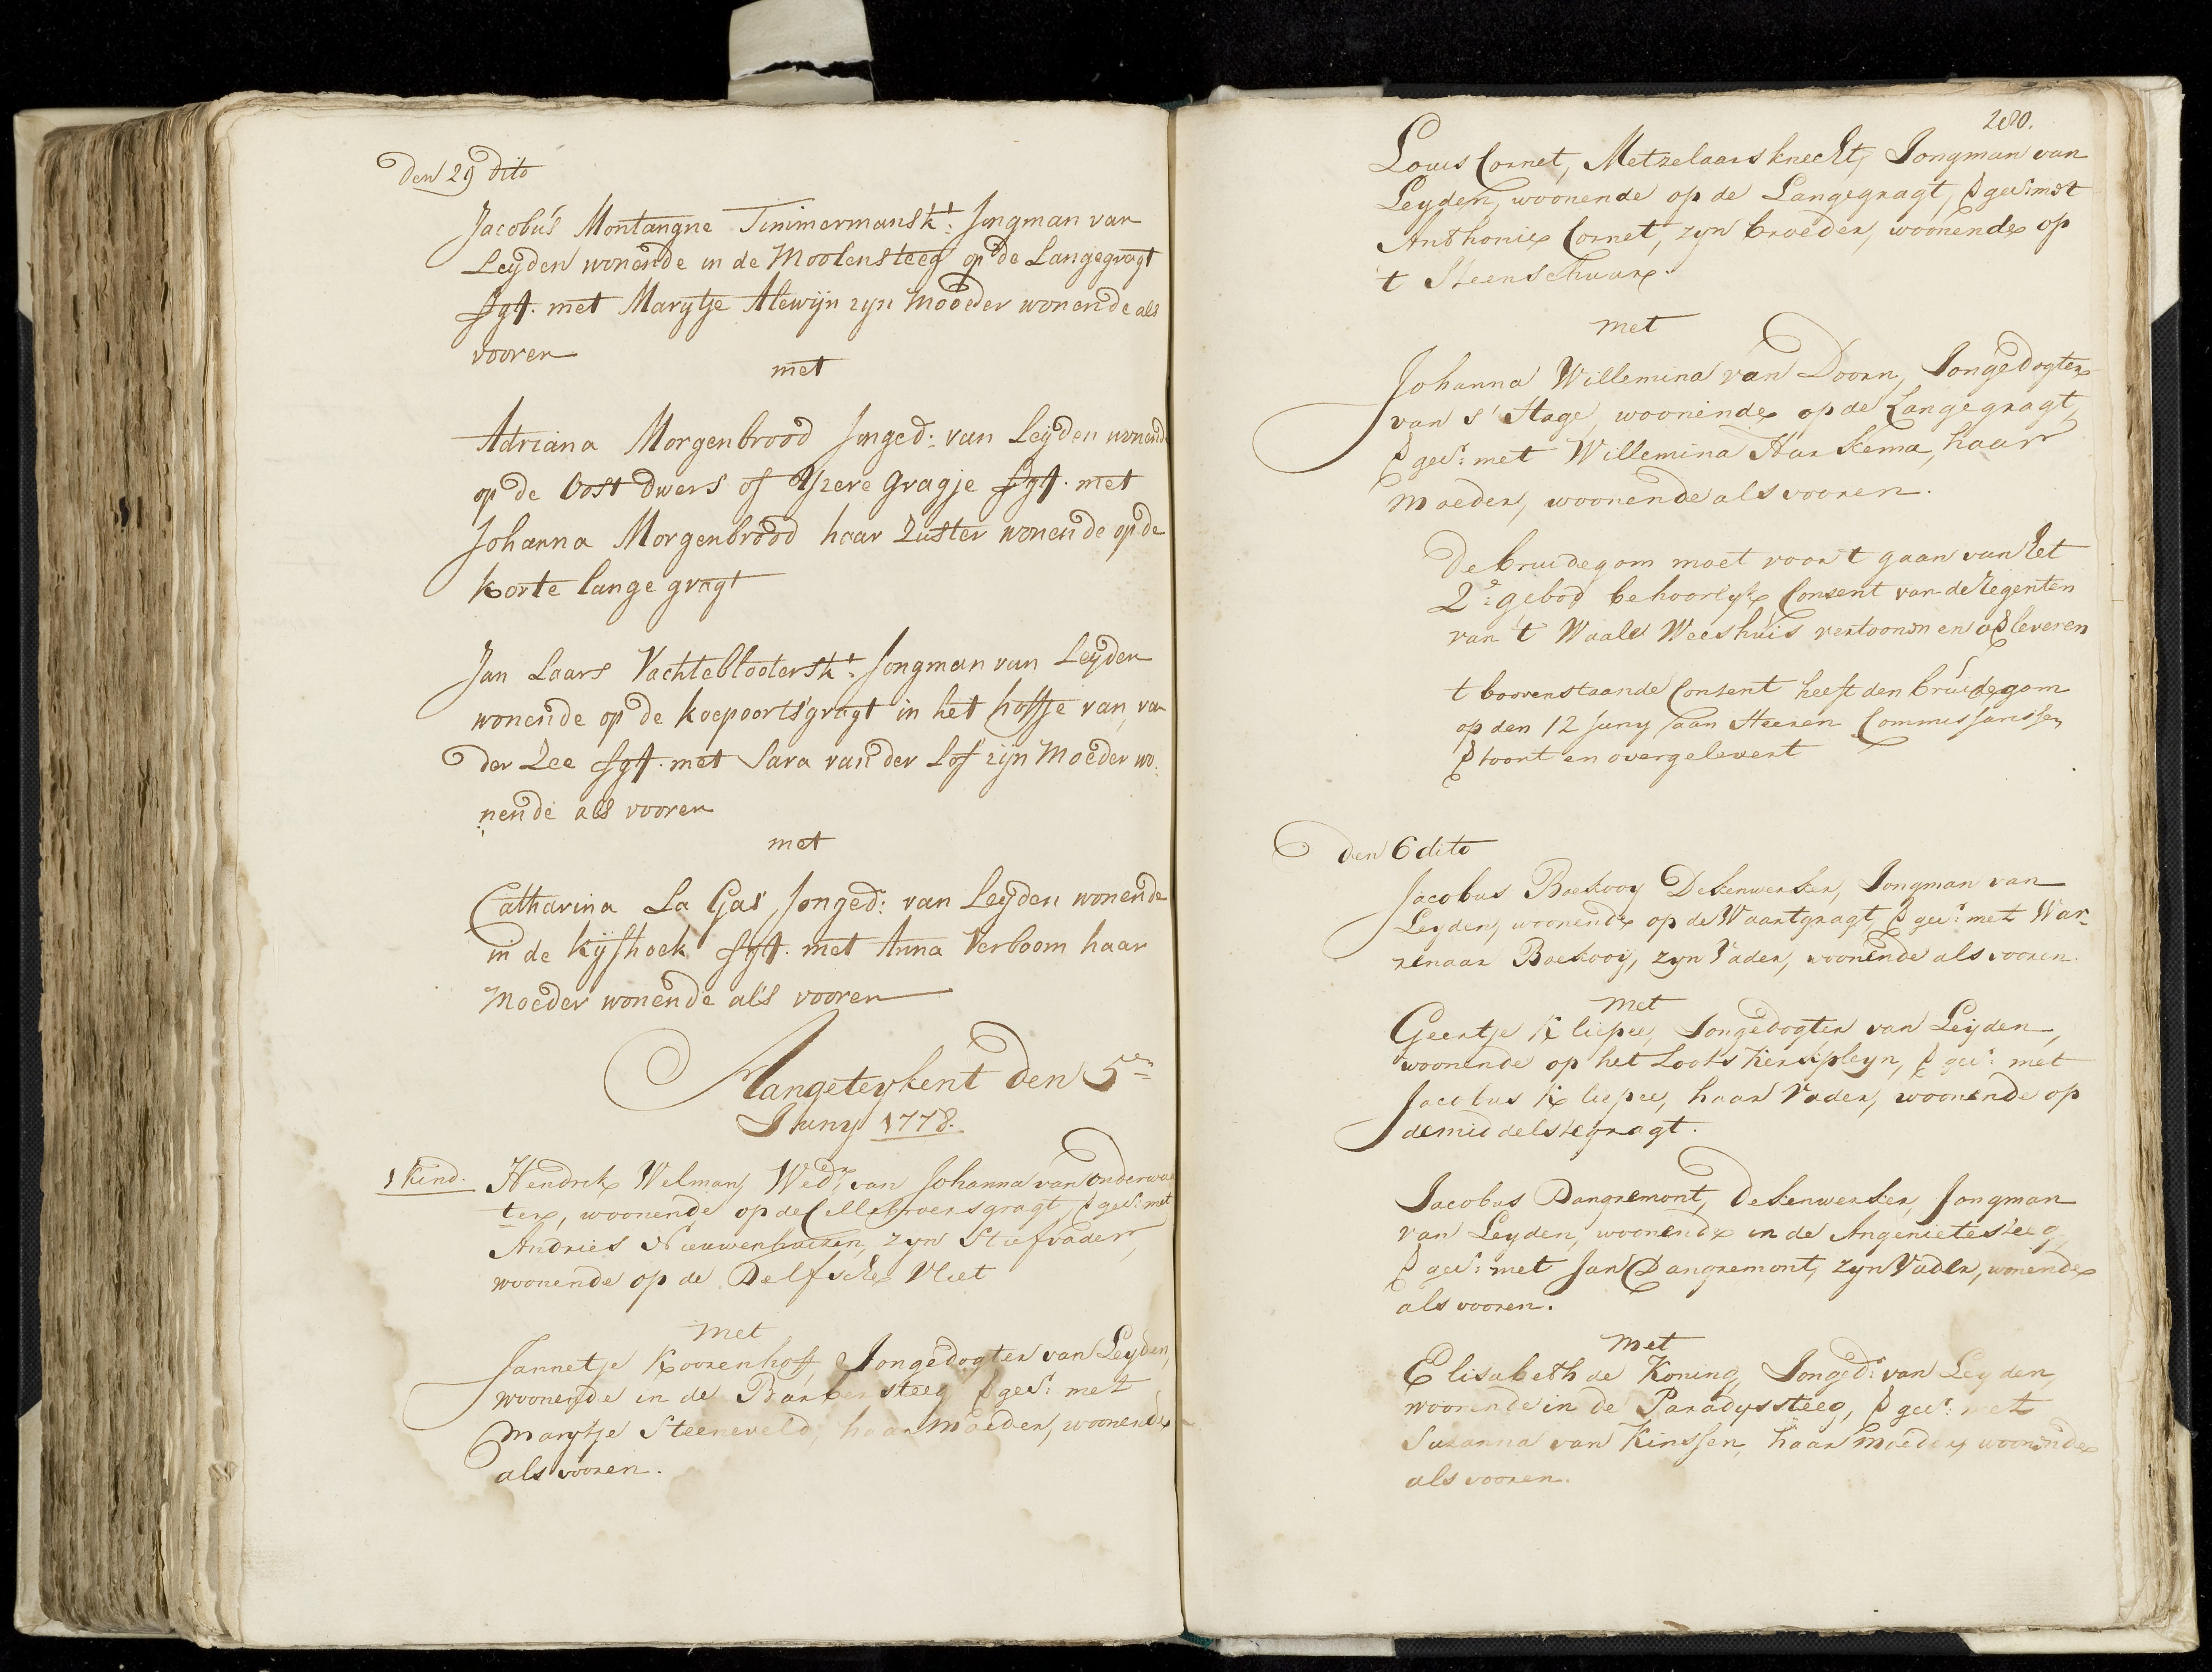 den 29 dito
Jacobus Montangne Timmermanskt: Jongman van
Leyden wonende in de Moolensteeg op de Langegragt
Vgt. met Marytje Alewijn zyn Mooeder wonende als
vooren
met
Adriana Morgenbrood Jonged: van Leyden wonend
op de Oost dwers of Yzere Gragje Vgt. met
Johanna Morgenbrood haar Zuster wonende op de
korte lange gragt
Jan Laars Vachteblooterskt: Jongman van Leyden
wonende op de koepoortsgragt in het hoffje van, van
der Zee Vgt. met Sara van der Lof zijn Moeder wo:
:nende als vooren
met
Catharina La Gas Jonged: van Leyden wonende
in de Kijfhoek Vgt. met Anna Verboom haar
Moeder wonende als vooren
Aangeteykent den 5en
Juny 1778.
1 Kind. Hendrik Welman, Wedr van Johanna van Onderwa
ter, woonende op de Cellebroersgragt, Vges: met
Andries Nieuwenhuizen, zyn Stiefvader,
woonende op de Delfsche Vliet
met
Jannetje Koorenhoff, Jongedogter van Leyden,
woonende in de Bakkersteeg Vges: met
Marytje Steeneveld, haar Moeder, woonende
als vooren.
280.
Louis Cornet, Metzelaarsknecht, Jongman van
Leyden, woonende op de Langegragt, Vges: met
Anthonie Cornet, zyn broeder, woonende op
't Steenschuur.
met
Johanna Willemina van Doorn, Jongedogter
van s'Hage, woonende op de Langegragt,
Vges: met Willemina Harkema, haar
Moeder, woonende als vooren.
De bruidegom moet voor t gaan van het
2e: gebod behoorlyk Consent van de Regenten
van 't Waale Weeshuis vertoonen en oVleveren
t boovenstaande Consent heeft den bruidegom
op den 12 Juny aan Heeren Commissarissen
Vtoont en overgelevert
den 6 dito
Jacobus Boekooy Dekenwerker, Jongman van
Leyden, woonende op de Waardgragt Vges: met War-
renaar Boekooij, zyn Vader, woonende als vooren.
met
Geertje Kliepee, Jongedogter van Leyden,
woonende op het Looks Kerkpleyn, Vges: met
Jacobus Kliepee, haar Vader, woonende op
de middelstegragt.
Jacobus Dangremont, Dekenwerker, Jongman
van Leyden, woonende in de Angenietesteeg
Vges: met Jan Dangremont, zyn Vader, wonende
als vooren.
met
Elisabeth de Koning, Jonged: van Leyden,
woonende in de Paradyssteeg, Vges: met
Suzanna van Kinssen, haar Moeder, woonende
als vooren.